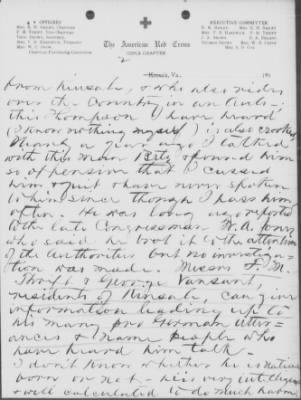 OFFICERS
EXECUTIVE COMMITTEE
The American Red Cross
COPLE CHAPTER
2
Kinsale, Va. 191
from Kinsale, & who also rides
over the Country in an Auto-;
this Thompson I have heard
(I know nothing myself) is also crooked
Nearly a year ago I talked
with this man Betz & found him
so offensive that I cussed
him & quit & have never spoken
to him since though I pass him
often. He was long ago reported
to the late Congressman W. A. Jones
who said he brot it to the attention
of the Authorities but no investiga-
tion was made. Messrs F. M.
& George Vansant,
residents of Kinsale, can give
information leading up to
his many pro German utter-
ances & name people who
have heard him talk -
I don't know whether he is native
born or not - He is very intelligent
& well calculated to do much harm